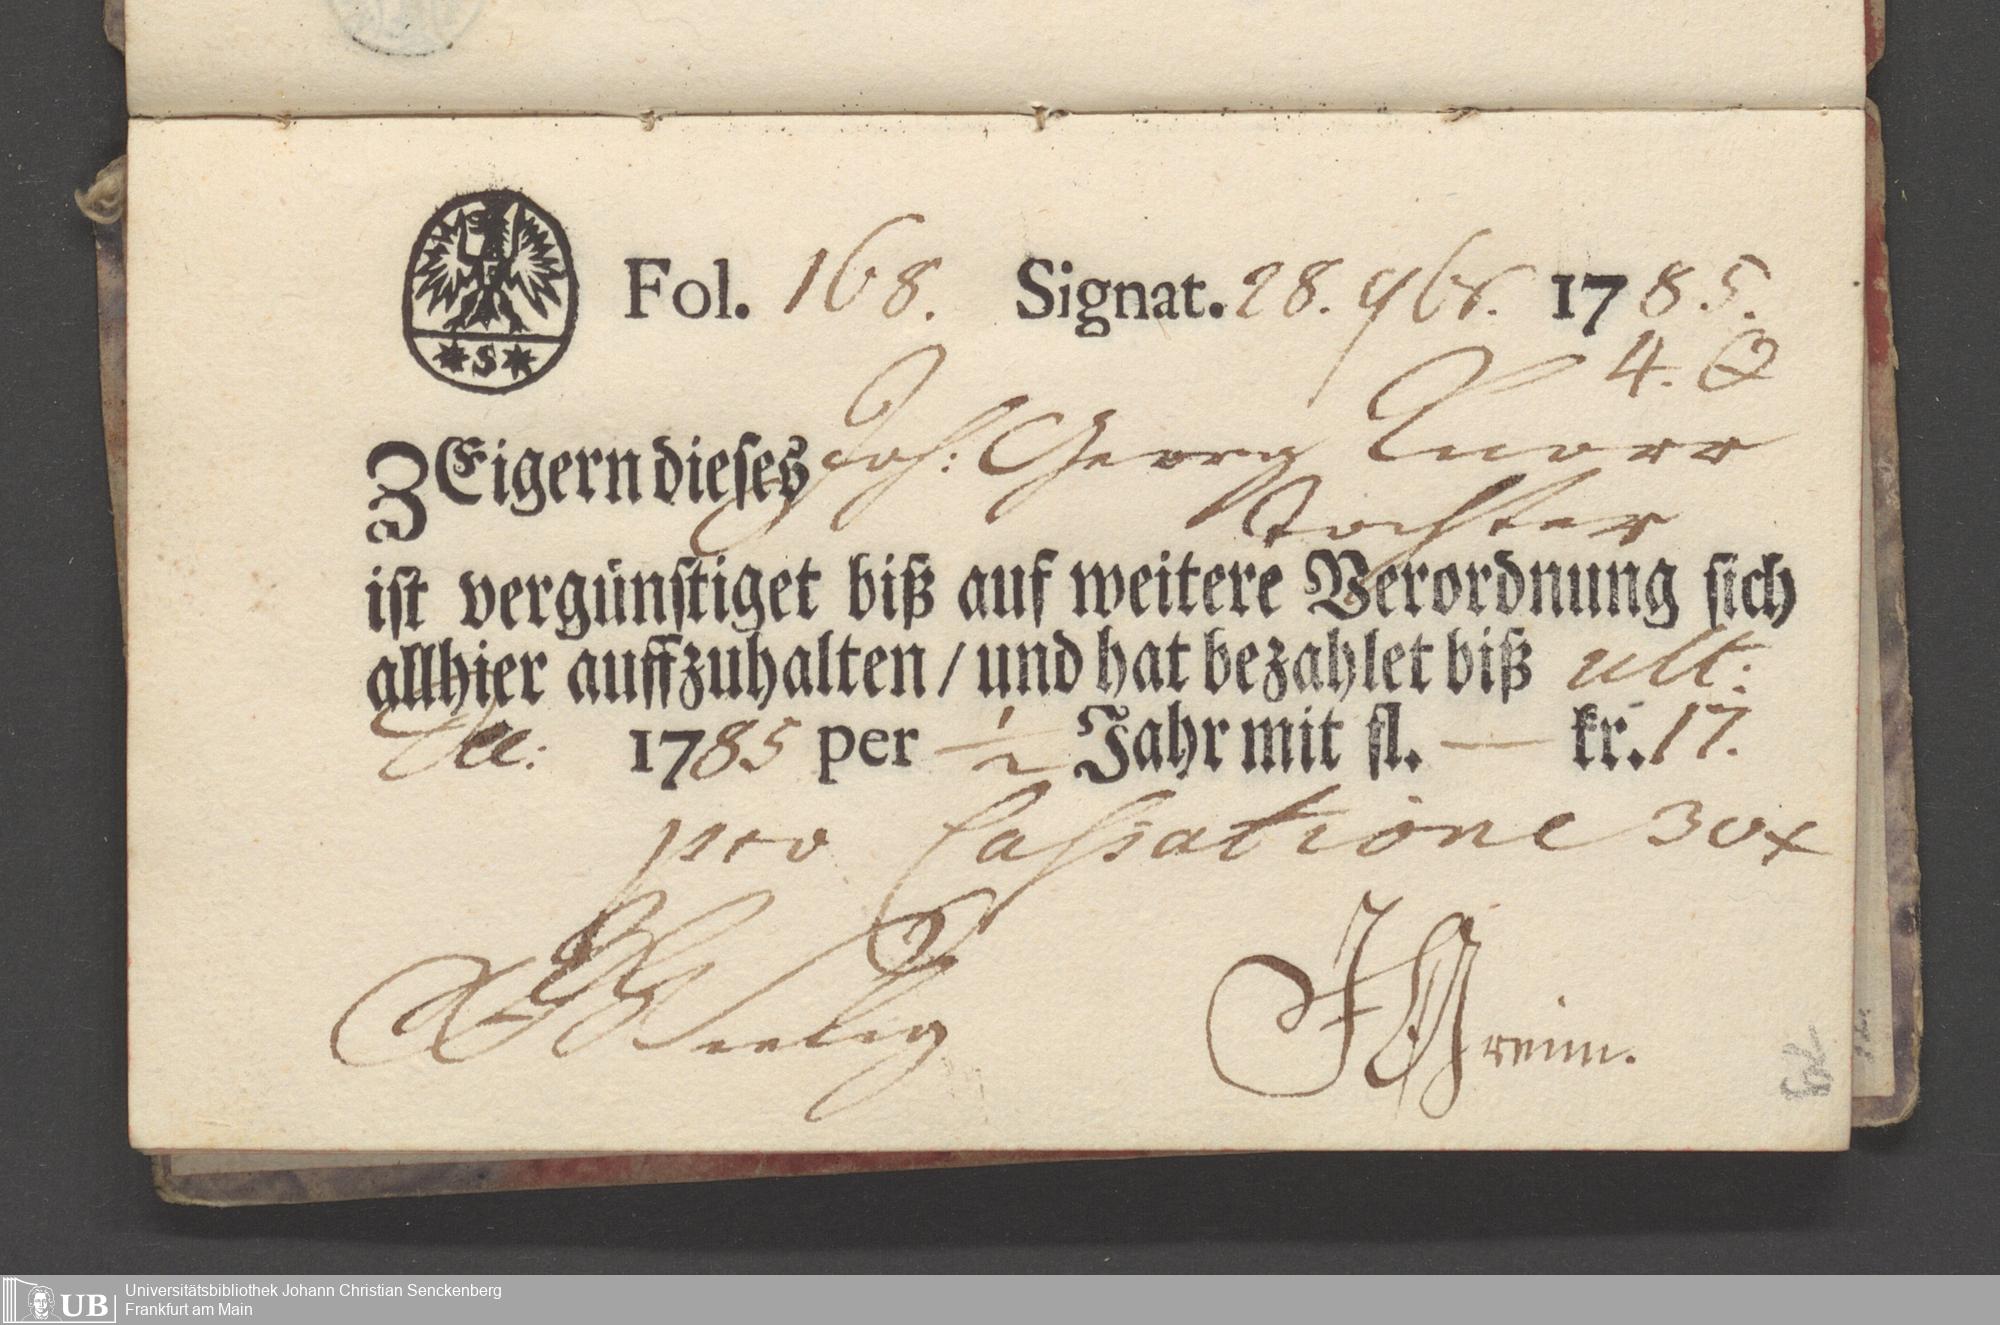 Fol. 168. Signat. 28. 9br. 1785.
4. Q
ZEigern dieses Joh: Georg Knorr
Tochter
ist vergünstiget biß auf weitere Verordnung sich
allhier auffzuhalten / und hat bezahlet biß ult:
Dec: 1785 per ½ Jahr mit fl. — kr. 17.
pro Cassatione 30 x
*S*
Universitätsbibliothek Johann Christian Senckenberg
Frankfurt am Main
UB